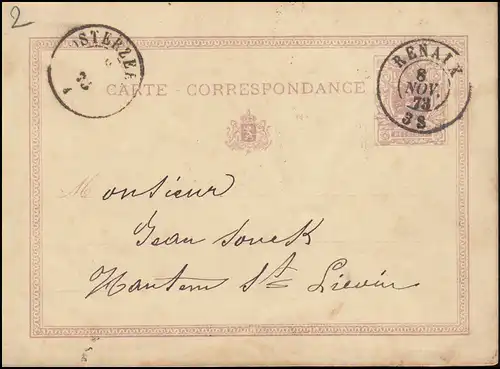 2
OSTERZEE
CARTE - CORRESPONDANCE
RENAIX
8
NOV.
73
3 S
Monsieur
Jean Sonck
Hautem St. Lievin